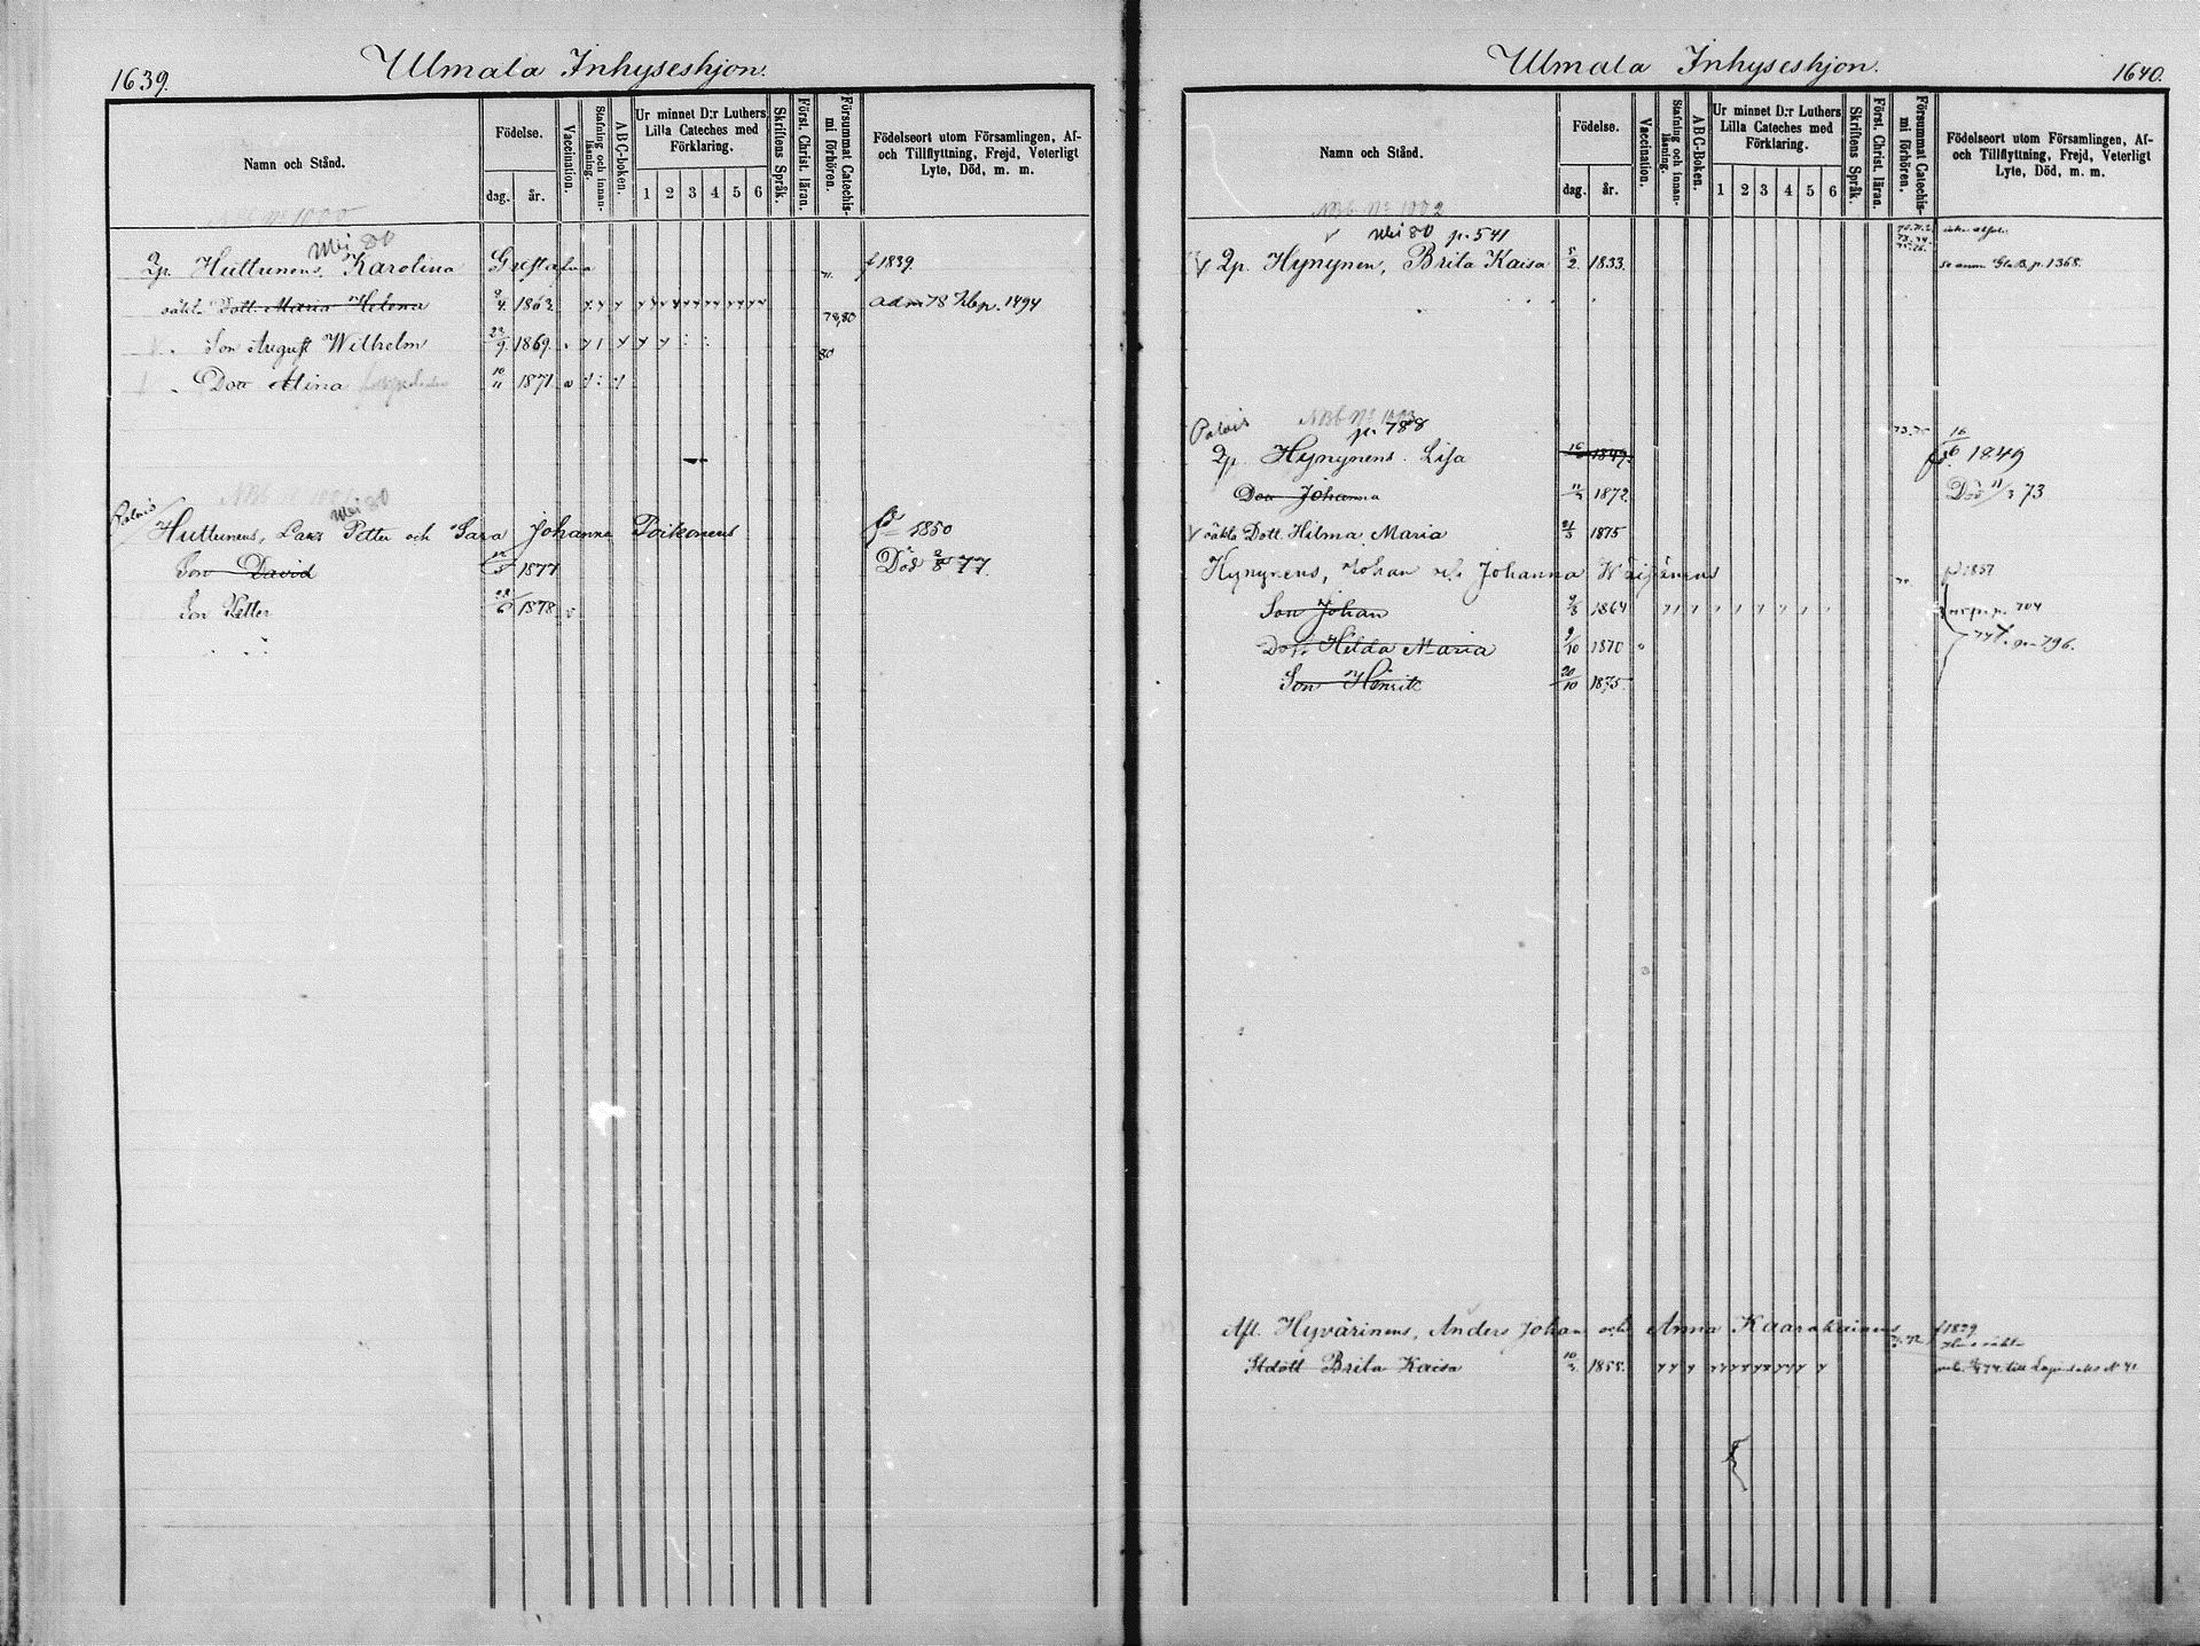 1639.
Ulmala Inhyseshjon.
Namn och Stånd.
Födelse.
dag. år.
Vaccination.
Stafning och innan-läsning.
ABC-boken.
Ur minnet D:r Luthers Lilla Cateches med Förklaring.
1 2 3 4 5 6
Skriftens Språk.
Först. Christ. läran.
Försummat Catechis-mi förhören.
Födelseort utom Församlingen, Af- och Tillflyttning, Frejd, Veterligt Lyte, Död, m. m.
NBb No 1000
Mei 80
Qp. Huttunens, Karolina Gustafva f 1839.
oäkta Dott. Maria Helena 9/4. 1863 78,80 adm 78 Kbp. 1494
Son August Wilhelm 23/9. 1869. 80
Dott Mina 10/11 1871
Palois
Mei 80
Huttunens, Lars Petter och Sara Johanna Toikonens 1850
Son David 1877 Död 77.
Son Petter 28/6 1878
Ulmala Inhyseshjon.
1640.
Namn och Stånd.
Födelse.
dag. år.
Vaccination.
Stafning och innan-läsning.
ABC-Boken.
Ur minnet D:r Luthers Lilla Cateches med Förklaring.
1 2 3 4 5 6
Skriftens Språk.
Först. Christ. läran.
Försummat Catechis-mi förhören.
Födelseort utom Församlingen, Af- och Tillflyttning, Frejd, Veterligt Lyte, Död, m. m.
NBb No 1002
Mei 80 p. 541
Qp. Hynynen, Brita Kaisa 5/2. 1833. p. 1368.
NBb No 1003
Palois p. 788 73.75 16
Qp. Hynynens. Lisa 16/6 1849. 6 1849
Dott Johanna 11/2 1872 Död 11/3 73
oäkta Dott. Hilma Maria 21/3 1875
Hynynens, Johan och Johanna Wäisänens 1857
Son Johan 9/3 1864 p. 704
Dott Hilda Maria 9/10 1870 p. 796.
Son Henrik 20/10 1875.
Afl. Hyvärinens, Anders Johan och Anna Kaarakainens f 1829
Stdott Brita Kaisa 10/2. 1855. 74 till No 41